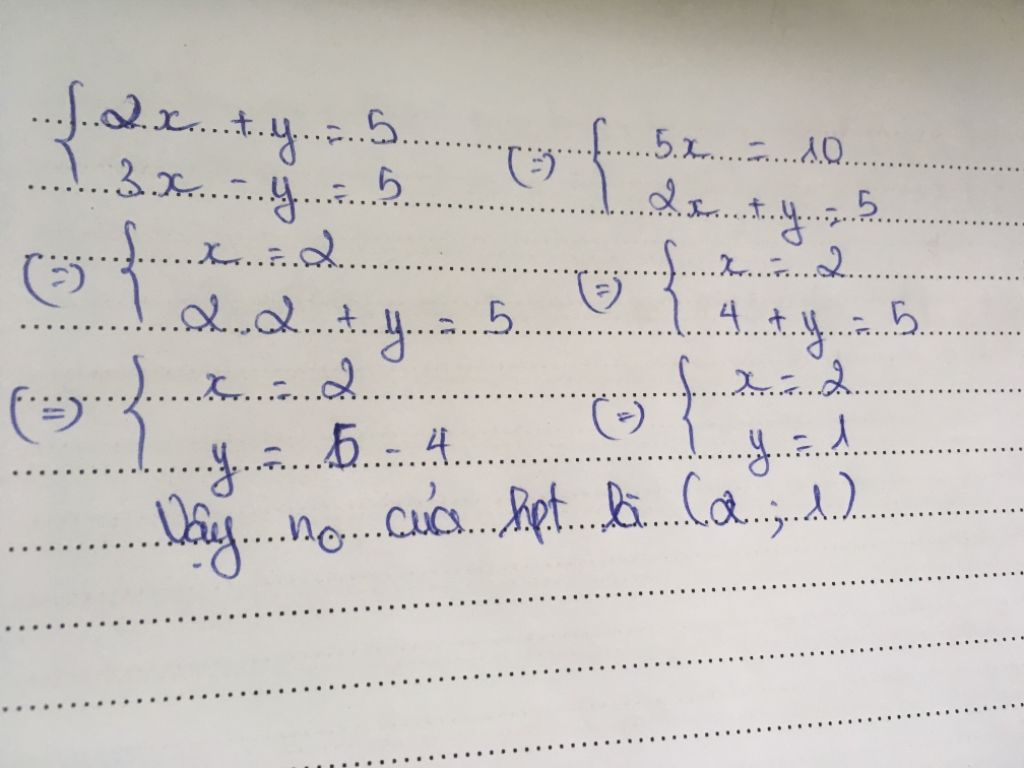 { 2x + y = 5
3x - y = 5
(=) { 5x = 10
2x + y = 5
(=) { x = 2
2.2 + y = 5
(=) { x = 2
4 + y = 5
(=) { x = 2
y = 5 - 4
(=) { x = 2
y = 1
Vậy n₀ của hpt là (2 ; 1)